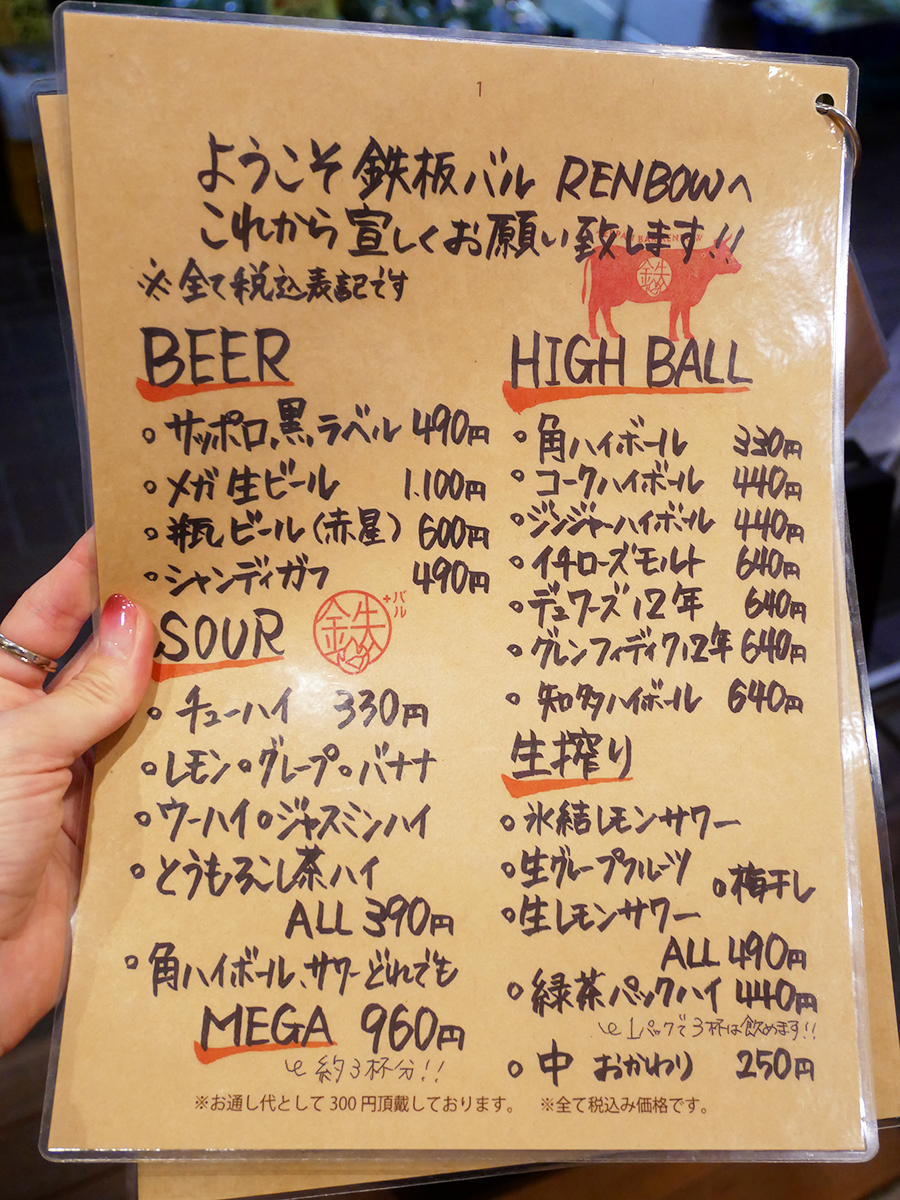 1
ようこそ 鉄板バル RENBOWへ
これから宜しくお願い致します!!
※全て税込表記です
BEER
○サッポロ黒ラベル 490円
○メガ生ビール 1.100円
○瓶ビール(赤星) 600円
○シャンディガフ 490円
SOUR
鉄 +バル
○チューハイ 330円
○レモン○グレープ○バナナ
○ウーハイ○ジャスミンハイ
○とうもろこし茶ハイ
ALL 390円
○角ハイボール、サワーどれでも
MEGA 960円
約3杯分!!
HIGH BALL
○角ハイボール 330円
○コークハイボール 440円
○ジンジャーハイボール 440円
○イチローズモルト 640円
○デュワーズ12年 640円
○グレンフィディク12年 640円
○知多ハイボール 640円
生搾り
○氷結レモンサワー
○生グレープフルーツ
○梅干し
○生レモンサワー
ALL 490円
○緑茶パックハイ 440円
1パックで3杯は飲めます!!
○中 おかわり 250円
※お通し代として300円頂戴しております。 ※全て税込み価格です。